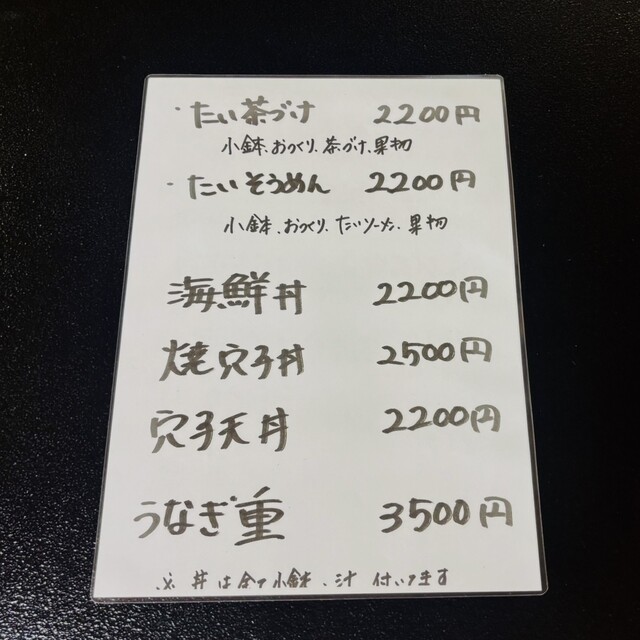 ・たい茶づけ 2200円
小鉢、おつくり、茶づけ、果物
・たいそうめん 2200円
小鉢、おつくり、たいソーメン、果物
海鮮丼 2200円
焼穴子丼 2500円
穴子天丼 2200円
うなぎ重 3500円
※ 丼は全て小鉢、汁 付いてます